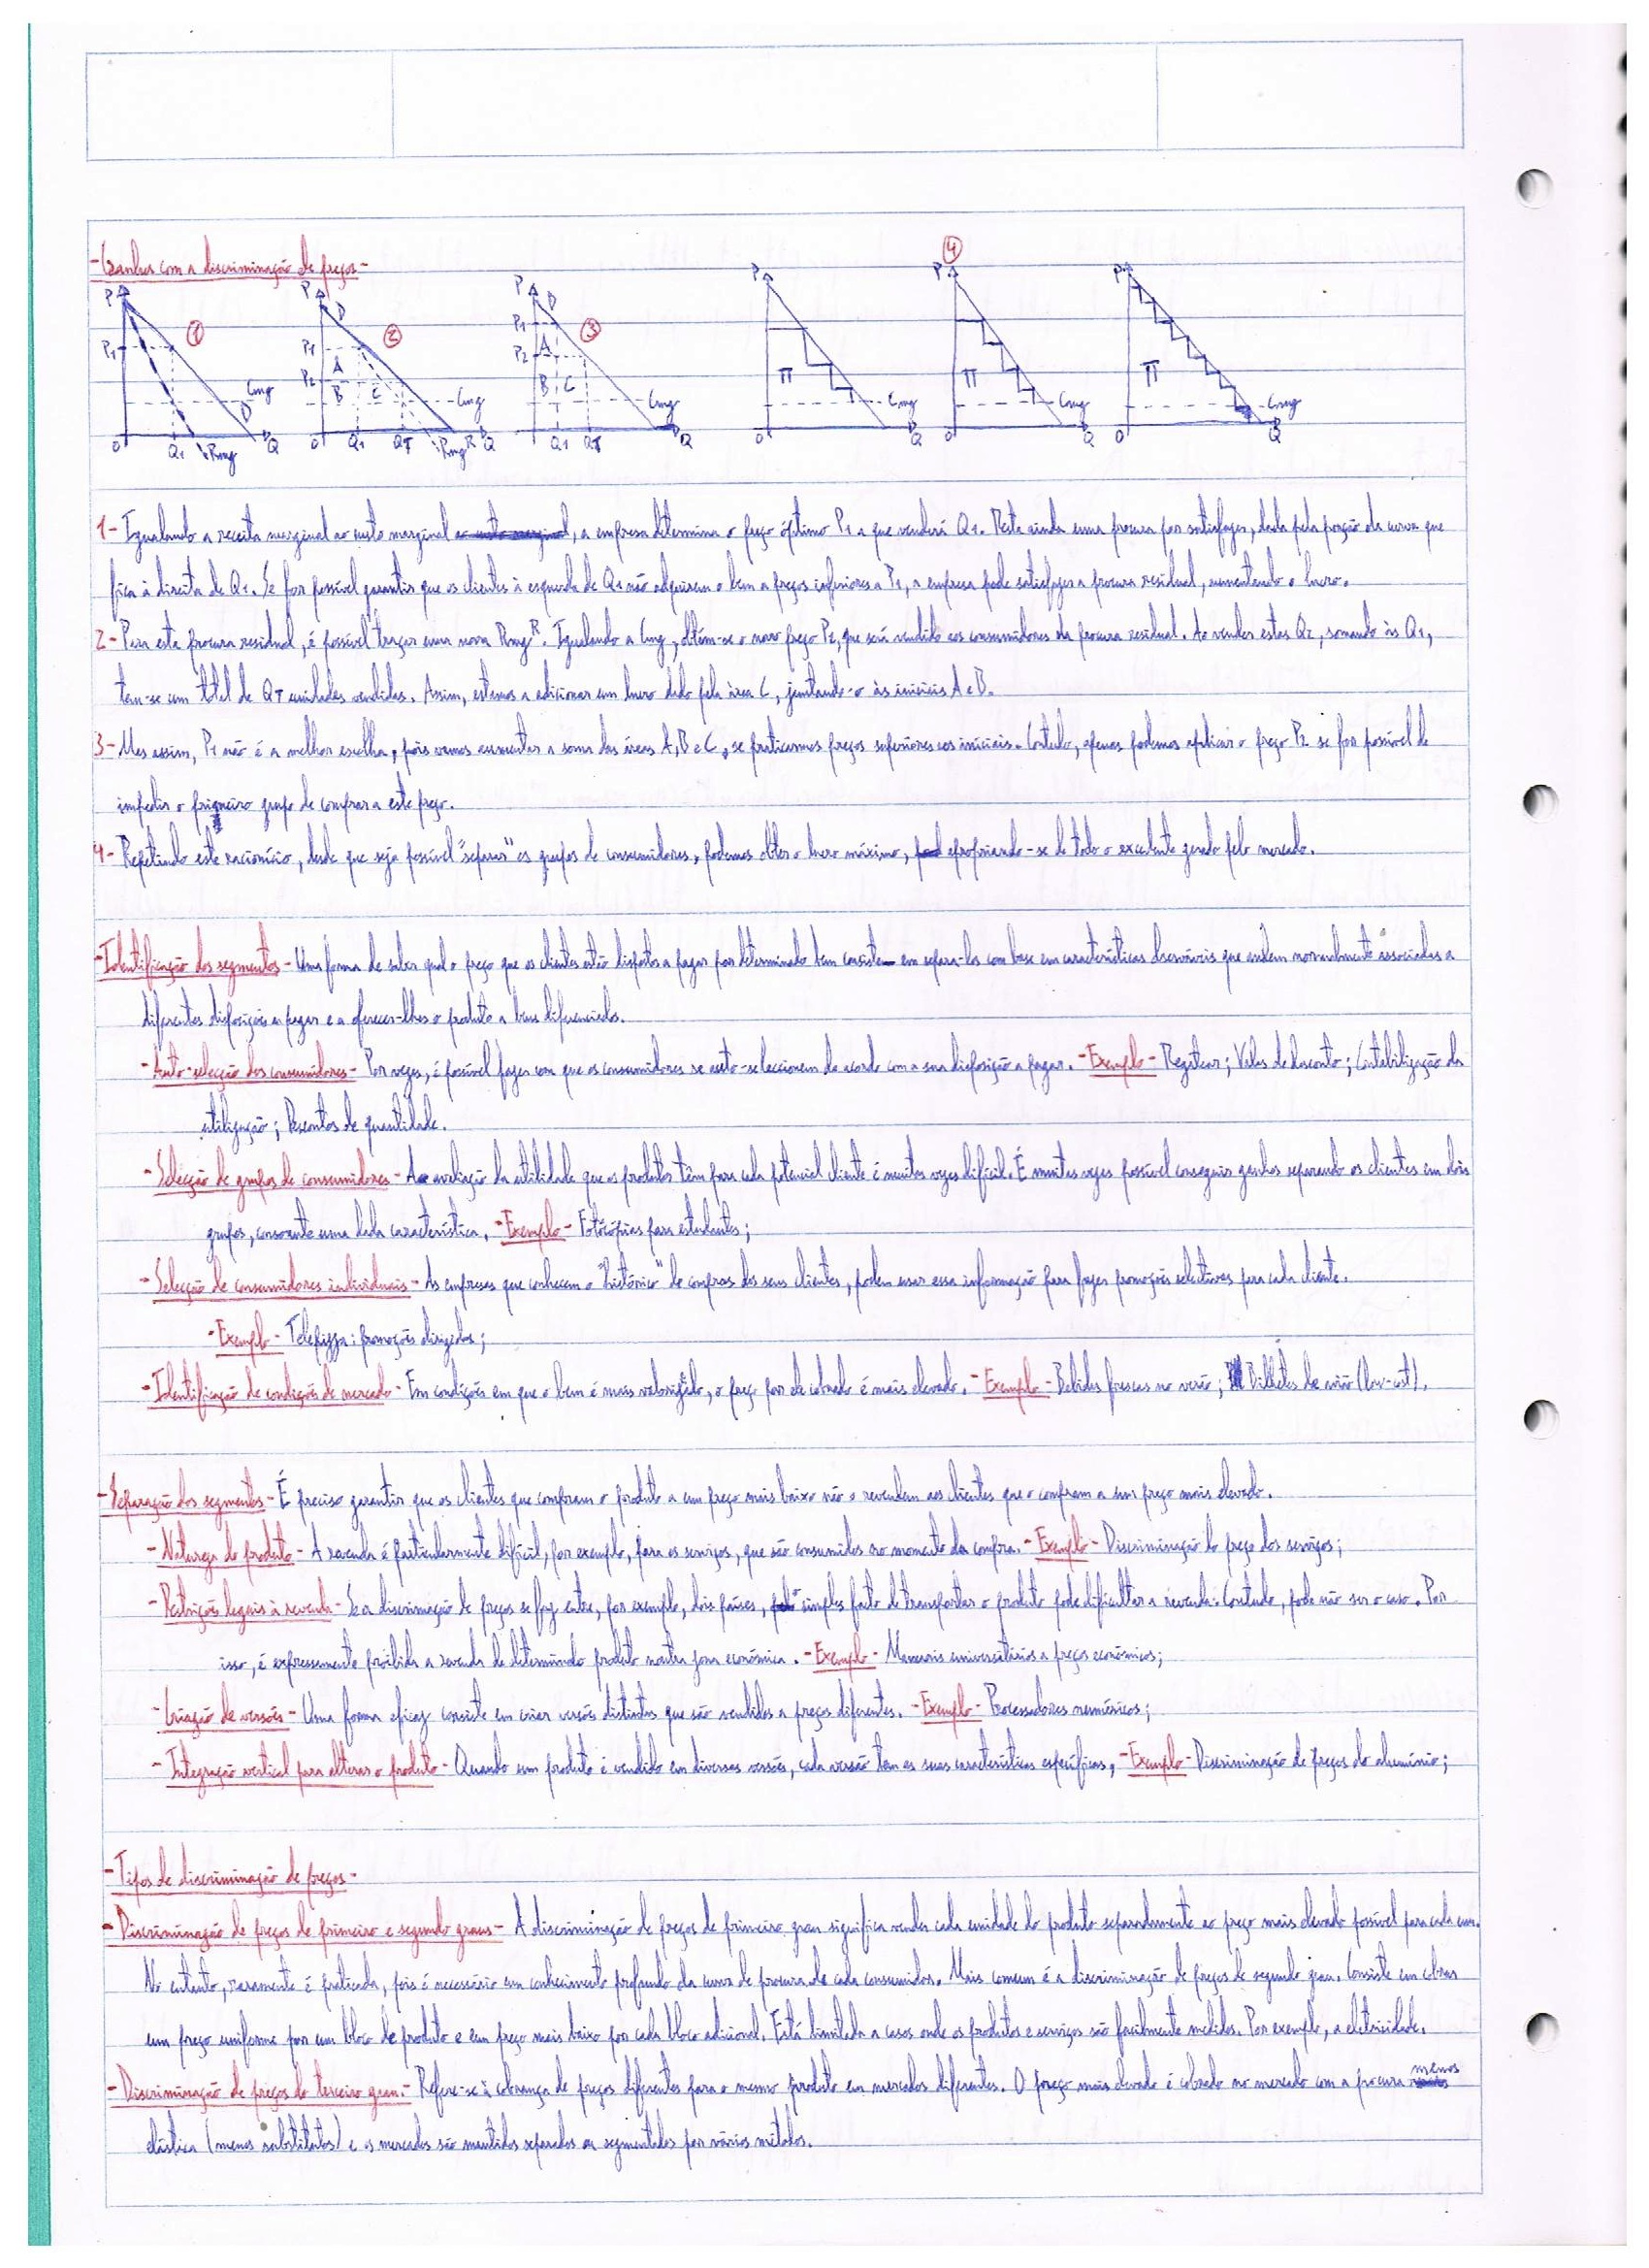 -Ganhos com a discriminação de preços-
P P1 ① Cmg D O Q1 Rmg Q
P D P1 ② A P2 B C Cmg O Q1 QT Rmg R Q
P D P1 ③ P2 A B C Cmg Q1 QT Q
P π Cmg O Q
④ P π Cmg O Q
P π Cmg O Q
1- Igualando a receita marginal ao custo marginal ao custo marginal, a empresa determina o preço óptimo P1 a que venderá Q1. Resta ainda uma procura por satisfazer, dada pela porção da curva que
fica à direita de Q1. Se for possível garantir que os clientes à esquerda de Q1 não adquirem o bem a preços inferiores a P1, a empresa pode satisfazer a procura residual, aumentando o lucro.
2- Para esta procura residual, é possível traçar uma nova Rmg^R. Igualando a Cmg, obtém-se o novo preço P2, que será vendido aos consumidores da procura residual. Ao vender estas Q2, somando às Q1,
tem-se um total de QT unidades vendidas. Assim, estamos a adicionar um lucro dado pela área C, juntando-o às iniciais A e B.
3- Mas assim, P1 não é a melhor escolha, pois vamos aumentar a soma das áreas A, B e C, se praticarmos preços superiores aos iniciais. Contudo, apenas podemos aplicar o preço P2 se for possível de
impedir o primeiro grupo de comprar a este preço.
4- Repetindo este raciocínio, desde que seja possível "separar" os grupos de consumidores, podemos obter o lucro máximo, apropriando-se de todo o excedente gerado pelo mercado.
-Identificação dos segmentos- Uma forma de saber qual o preço que os clientes estão dispostos a pagar por determinado bem consiste em separá-los com base em características observáveis que andem normalmente associadas a
diferentes disposições a pagar e a oferecer-lhes o produto a bens diferenciados.
-Auto-selecção dos consumidores- Por vezes, é possível fazer com que os consumidores se auto-seleccionem de acordo com a sua disposição a pagar. -Exemplo- Regatear; Vales de desconto; Contabilização da
utilização; Descontos de quantidade.
-Selecção de grupos de consumidores- A avaliação da utilidade que os produtos têm para cada potencial cliente é muitas vezes difícil. É muitas vezes possível conseguir ganhos separando os clientes em dois
grupos, consoante uma dada característica. -Exemplo- Fotocópias para estudantes;
-Selecção de consumidores individuais- As empresas que conhecem o "histórico" de compras dos seus clientes, podem usar essa informação para fazer promoções selectivas para cada cliente.
-Exemplo- Telepizza: promoções dirigidas;
-Identificação de condições de mercado- Em condições em que o bem é mais valorizado, o preço por ele cobrado é mais elevado. -Exemplo- Bebidas frescas no verão; Bilhetes de avião (low-cost).
-Separação dos segmentos- É preciso garantir que os clientes que compram o produto a um preço mais baixo não o revendam aos clientes que o compram a um preço mais elevado.
-Natureza do produto- A revenda é particularmente difícil, por exemplo, para os serviços, que são consumidos no momento da compra. -Exemplo- Discriminação do preço dos serviços;
-Restrições legais à revenda- Se a discrimação de preços se faz entre, por exemplo, dois países, o simples facto de transportar o produto pode dificultar a revenda. Contudo, pode não ser o caso. Por
isso, é expressamente proibida a revenda de determinado produto noutra zona económica. -Exemplo- Manuais universitários a preços económicos;
-Criação de versões- Uma forma eficaz consiste em criar versões distintas que são vendidas a preços diferentes. -Exemplo- Processadores numéricos;
-Integração vertical para alterar o produto- Quando um produto é vendido em diversas versões, cada versão tem as suas características específicas, -Exemplo- Discriminação de preços do alumínio;
-Tipos de discriminação de preços-
-Discriminação de preços de primeiro e segundo graus- A discriminação de preços de primeiro grau significa vender cada unidade do produto separadamente ao preço mais elevado possível para cada uma.
No entanto, raramente é praticada, pois é necessário um conhecimento profundo da curva de procura de cada consumidor. Mais comum é a discriminação de preços de segundo grau. Consiste em cobrar
um preço uniforme por um bloco de produto e um preço mais baixo por cada bloco adicional. Está limitada a casos onde os produtos e serviços são facilmente medidos. Por exemplo, a eletricidade.
-Discriminação de preços do terceiro grau.- Refere-se à cobrança de preços diferentes para o mesmo produto em mercados diferentes. O preço mais elevado é cobrado no mercado com a procura menos
elástica (menos substitutos) e os mercados são mantidos separados ou segmentados por vários métodos.